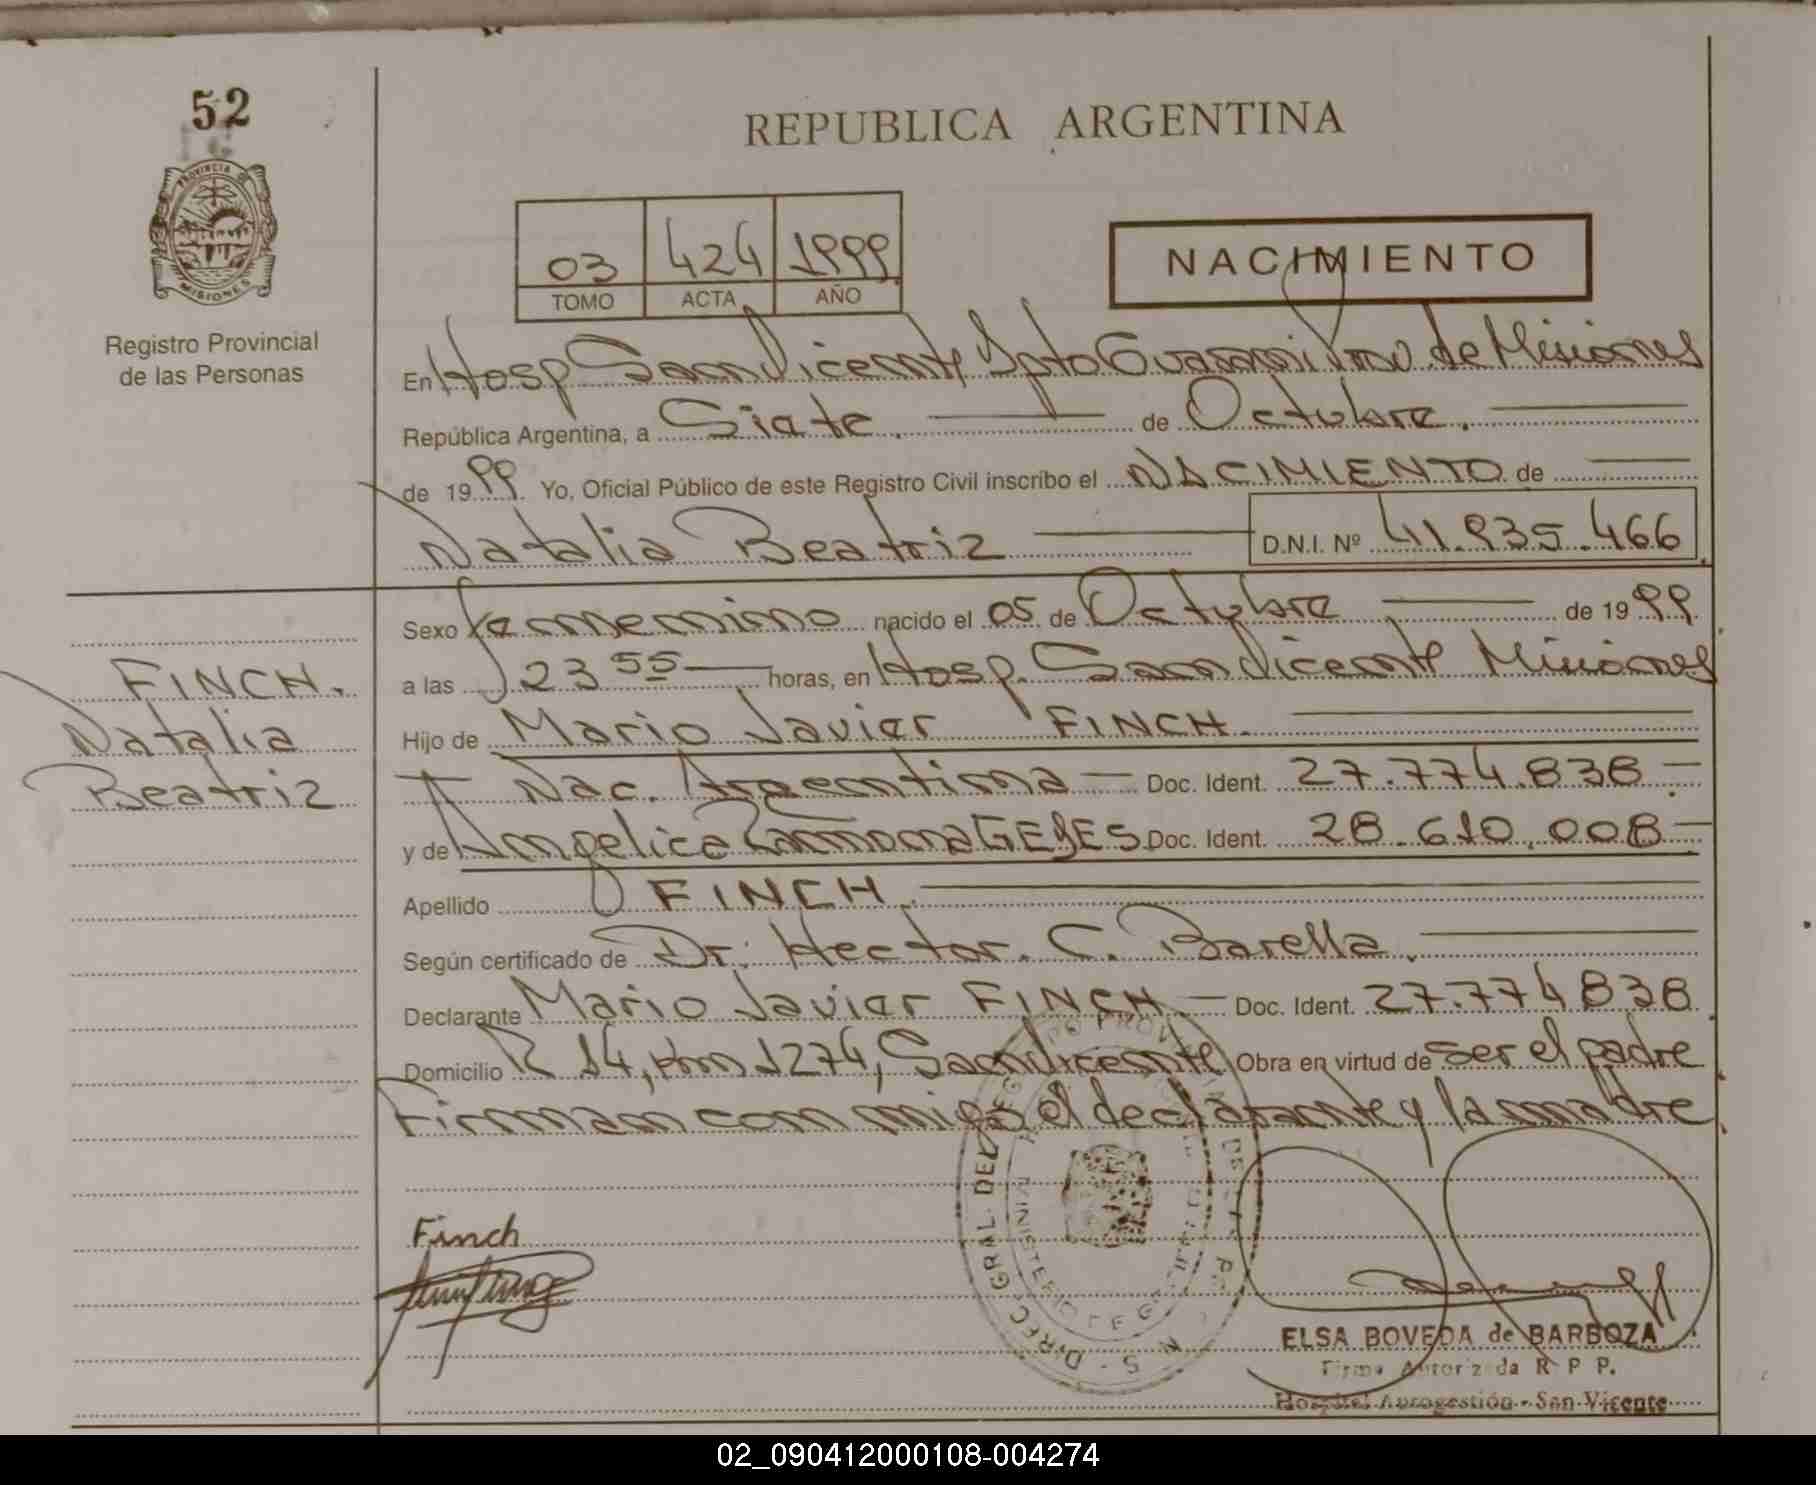 52
PROVINCIA DE
MISIONES
Registro Provincial
de las Personas
REPUBLICA ARGENTINA
03 424 1999
TOMO ACTA AÑO
NACIMIENTO
En Hosp San Vicente Dpto Guarani Prov. de Misiones
República Argentina, a Siete. de Octubre.
de 1999. Yo, Oficial Público de este Registro Civil inscribo el NACIMIENTO de
Natalia Beatriz D.N.I. Nº 41.935.466
Sexo femenino nacido el 05 de Octubre de 1999.
a las 23 55 horas, en Hosp. San Vicente Misiones
Hijo de Mario Javier FINCH.
Nac. Argentina Doc. Ident. 27.774.838
y de Angelica Ramona Doc. Ident. 28.610.008
Apellido FINCH.
Según certificado de Dr. Hector. C. Barella.
Declarante Mario Javier FINCH Doc. Ident. 27.774.838
Domicilio R 14, km 1274, San Vicente Obra en virtud de ser el padre
Firman conmigo el declarante y la madre
FINCH.
Natalia
Beatriz
Finch
DIREC. GRAL. DEL REG
MINISTERIO DE
ELSA BOVEDA de BARBOZA
Firma Autorizada R P P.
Hospital Autogestión - San Vicente
02_090412000108-004274